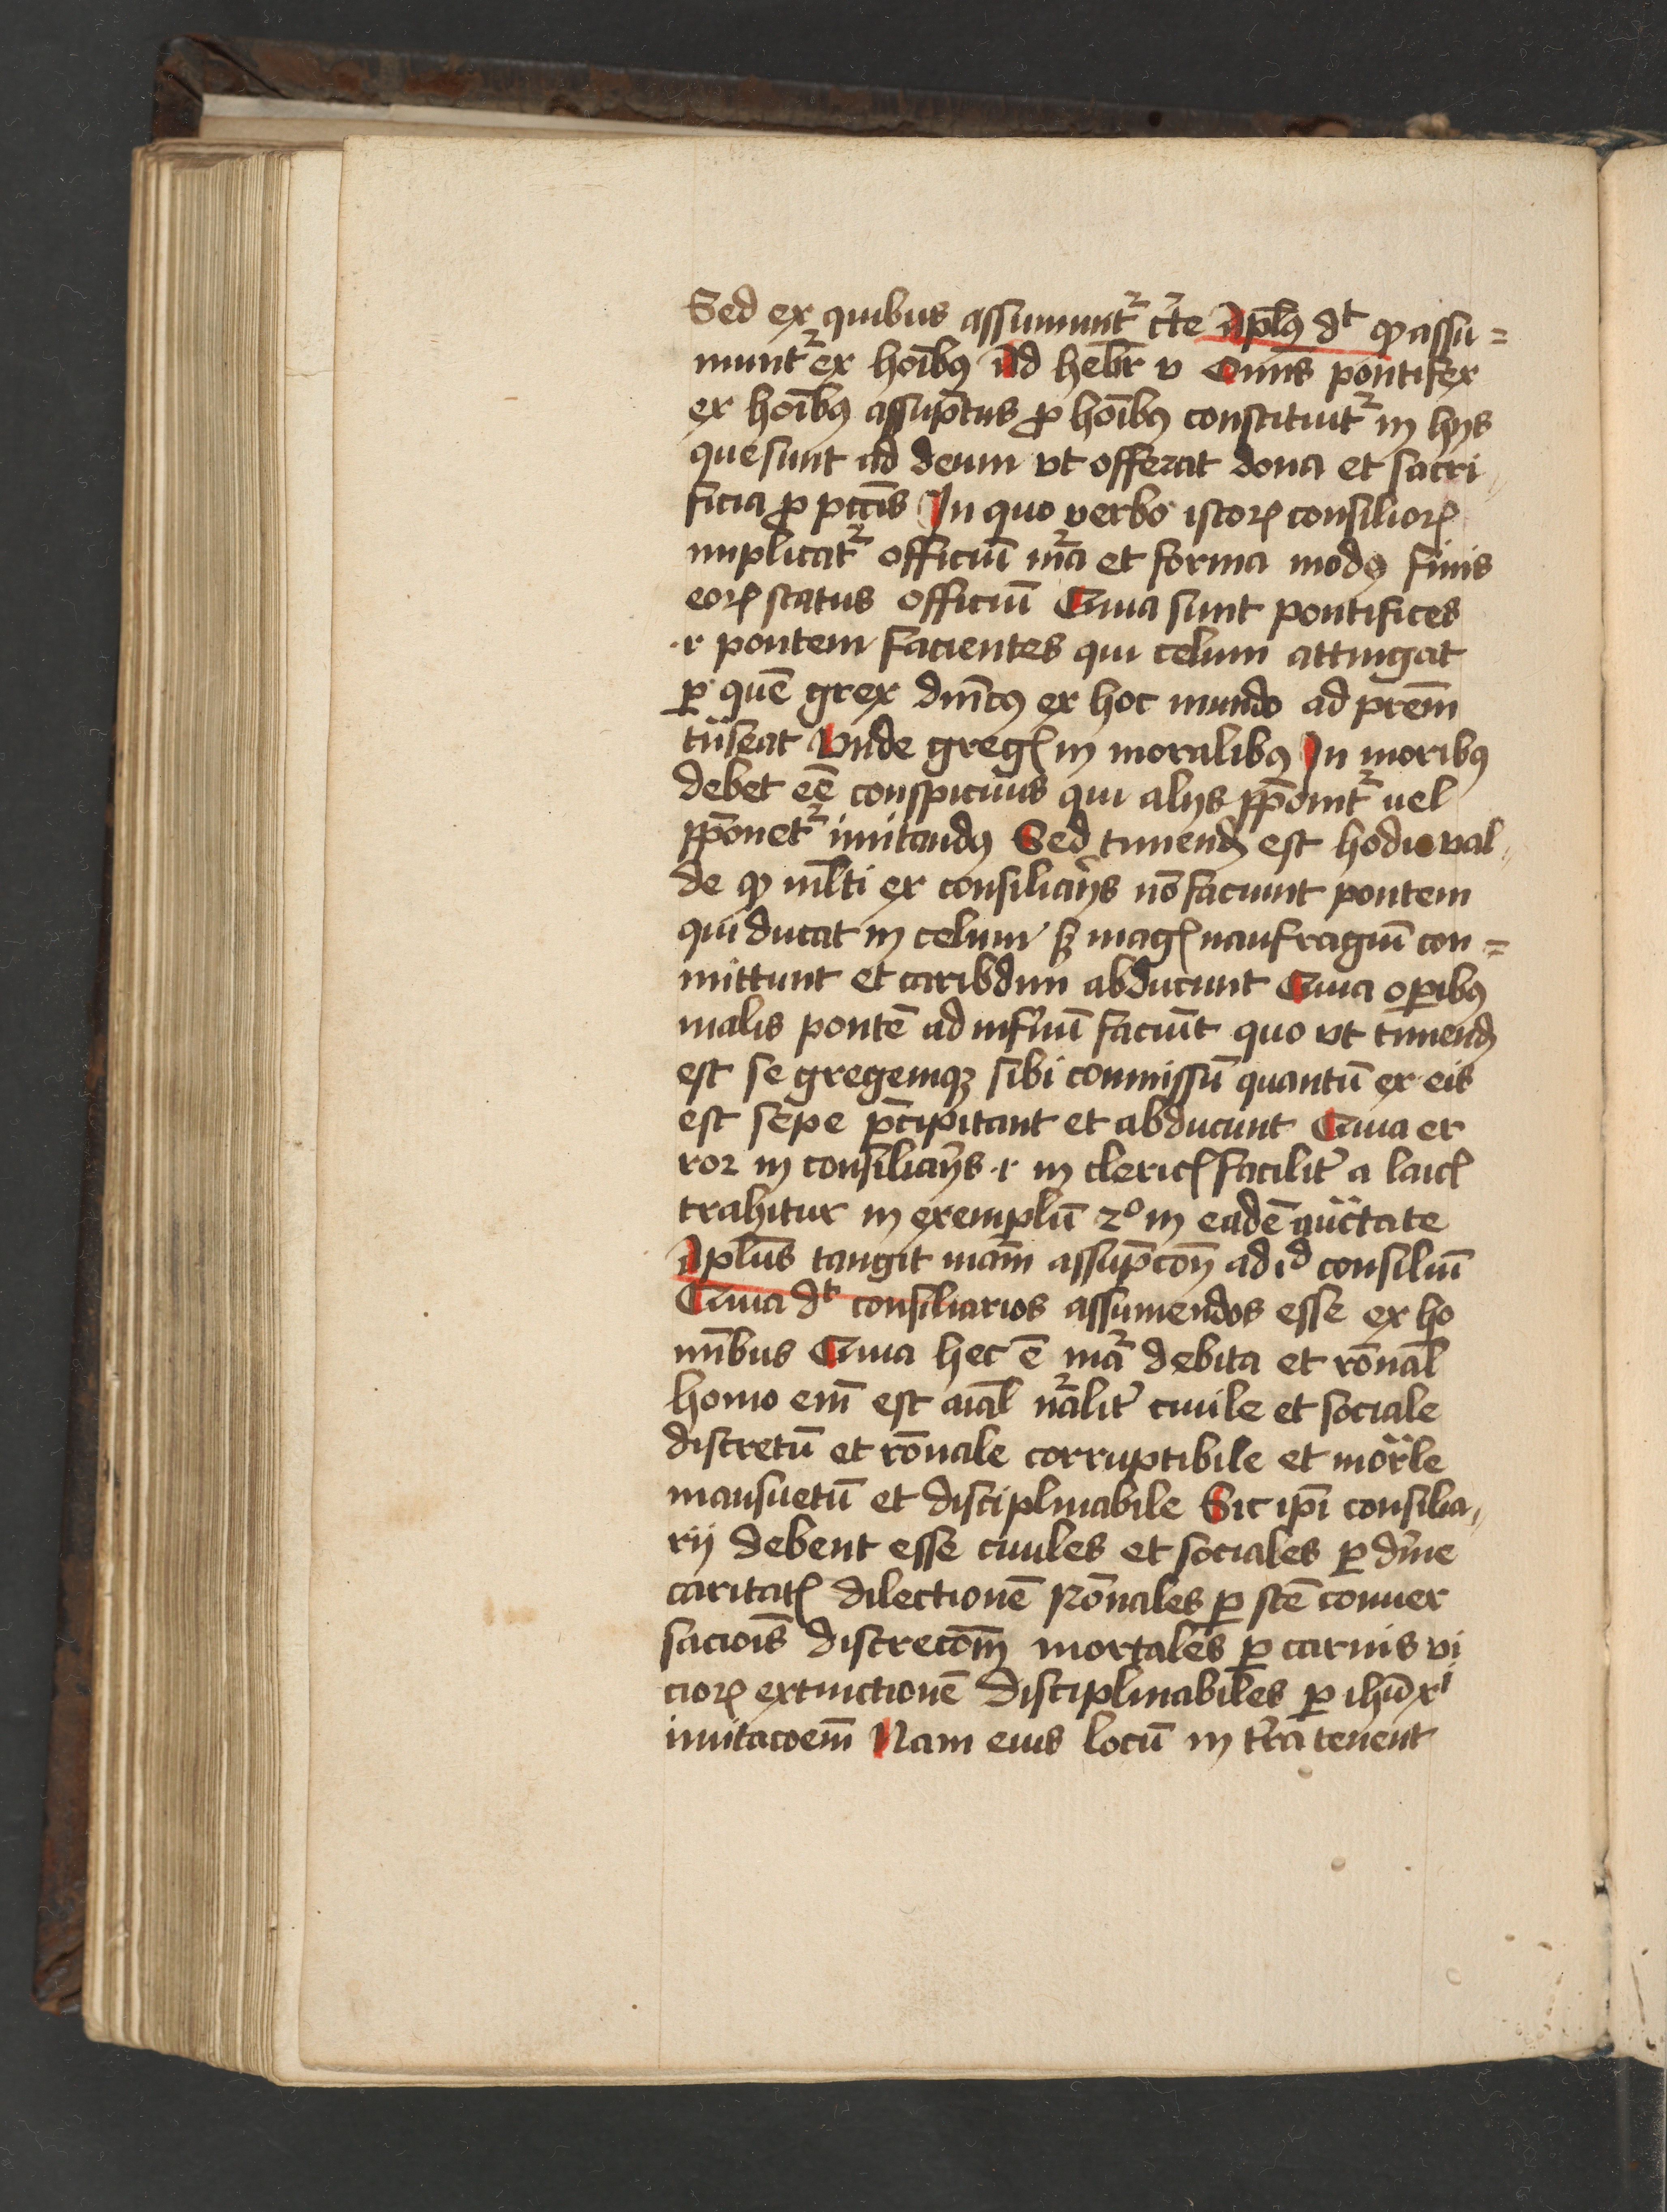 Sed ex quibus assumunt᷑ cᷣte Apl̅ꝰ dᵗ ꝙ assu=
munt᷑ ex hoı̅bꝰ Ad hebr̅ v Omı̅s pontifex
ex hoı̅bꝰ assup̅tus ꝓ hoı̅bꝰ constituit᷑ in hijs
que sunt ad deum vt offerat dona et sacri〃
ficia ꝓ pcc̅is In quo verbo istoꝝ consilioꝝ
implicat᷑ officiu̅ mᷓa et forma modꝰ finis
eoꝝ status officiu̅ Quia sunt pontifices
·i· pontem facientes qui celum attingat
ꝑ que̅ grex dn̅icꝰ ex hoc mundo ad pr̅em
tᷓnseat Vnde gregꝭ in moralibꝰ In moribꝰ
debet ee̅ conspicuus qui alijs p̅ponit᷑ uel
p̅ponet᷑ imitandꝰ Sed timendꝫ est hodie val〃
de ꝙ ml̅ti ex consiliarijs no̅ faciunt pontem
qui ducat in celum sꝫ magꝭ naufragiu̅ con=
mittunt et caribdim abducunt Quia oꝑibꝰ
malis ponte̅ ad inf̅nu̅ faciu̅t quo vt timendꝫ
est se gregemqꝫ sibi commissu̅ quantu̅ ex eis
est sepe p̅cipitant et abducunt Quia er
ror in consiliarijs ·i· in clericꝭ facilit͛ a laicꝭ
trahitur in exemplu̅ 2º in eade̅ auᷓctate
Apl̅us tangit mam̅ assup̅coꝫ ad id consiliu̅
Quia dᵗ consiliarios assumendos esse ex ho
mı̅bus Quia hec e̅ mᷓa debita et ro̅nal̅
homo em̅ est aial̅ nᷓalit͛ ciuile et sociale
discretu̅ et ro̅nale corruptibile et morᷓle
mansuetu̅ et disciplinabile Sic ip̅i consilia〃
rij debent esse ciuiles et sociales ꝑ diu͛ne
caritatꝭ dilectione̅ Ro̅nales ꝑ sce̅ conuer
sacio̅is discreco̅em mortales ꝑ carnis vi
cioꝝ extinctione̅ disciplinabiles ꝑ ihu̅xⁱ
imitacoem̅ Nam eius locu̅ in t͛ra tenent